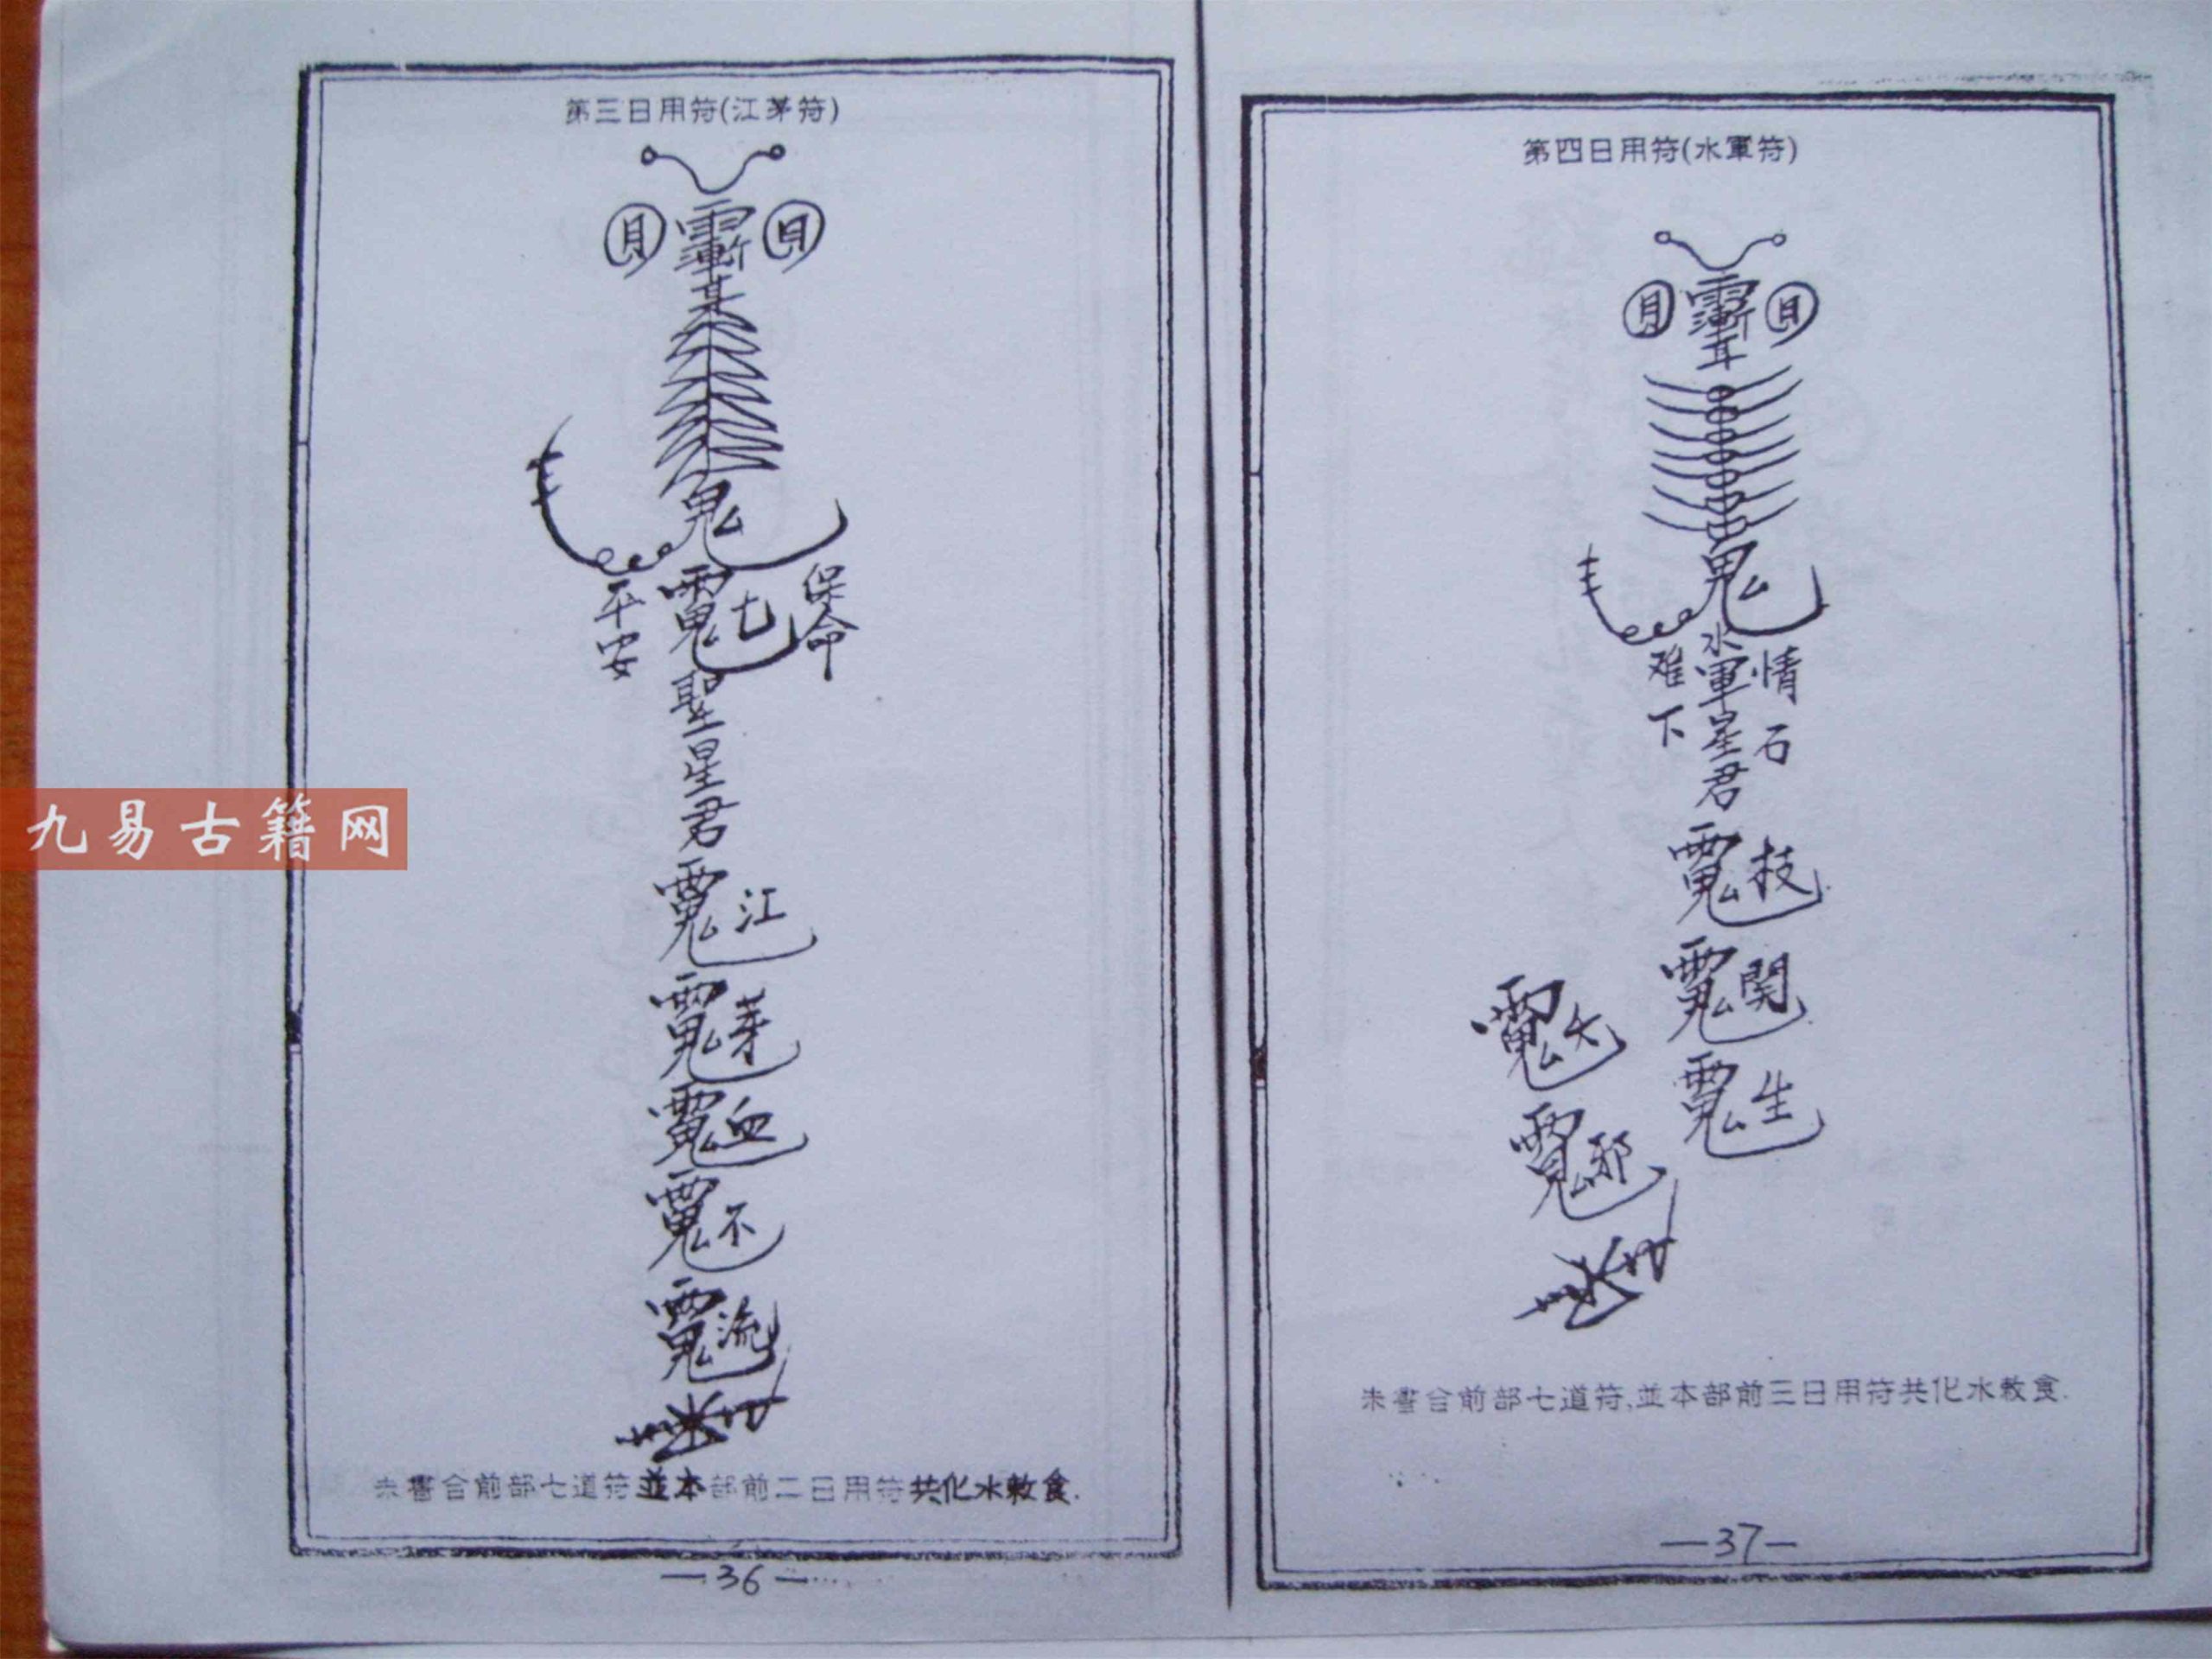 第三日用符(江茅符)
月
日
某
鬼
平安
保命
七
聖星君
江
茅
血
不
流
朱書合前部七道符並本部前二日用符共化水敕食.
—36—
九易古籍网
第四日用符(水軍符)
月
日
耳
鬼
水軍星君
难下
情石
技
関
生
大
邪
朱書合前部七道符,並本部前三日用符共化水敕食.
—37—